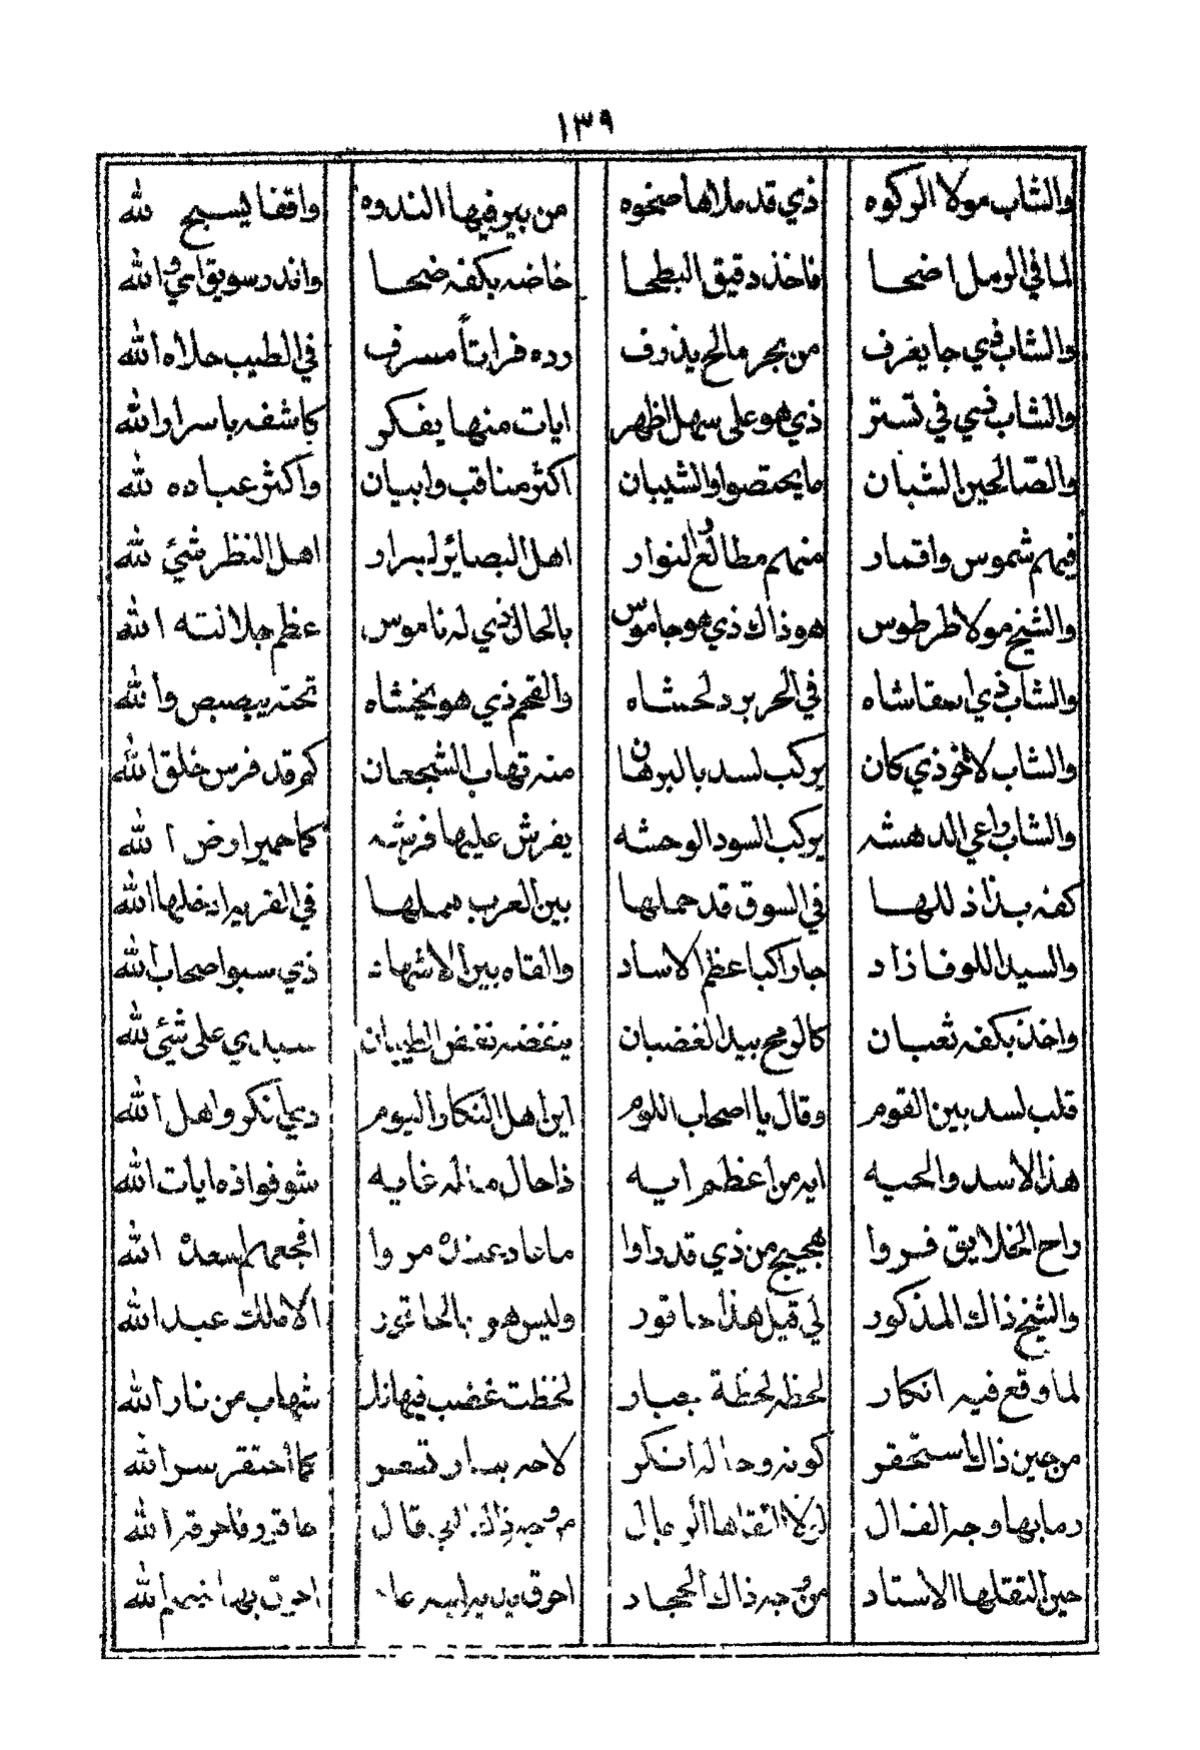 ١٣٩
والشاب مولا الركوه ذي قد ملاها صخوه من بير فيها الندوه واقفا يسبح لله
لما في الرمل اضحا فاخذ دقيق البطحا خاضه بكفه ضحا واندر سويق امي والله
والشاب ذي جا يغرف من بحر مالح يذرف رده فراتاً مسرف في الطيب حلاه الله
والشاب ذي في تستر ذي هو على سهل الظهر ايات منها يفكر كاشفه باسرار الله
والصالحين الشبان ما يحتصوا والشيبان اكثر مناقب وابيان واكثر عباده لله
فيهم شموس واقمار منهم مطالع النوار اهل البصائر لبرار اهل النظر شيئ لله
والشيخ مولا طرطوس هو ذاك ذي هو جاموس بالحال ذي له ناموس عظم جلالته الله
والشاب ذي اسقاشاه في الحر برد لحشاه والفحم ذي هو يخشاه تحته يبصبص والله
والشاب لاخو ذي كان يركب لسد بالبرهان منه تهاب الشجعان كم قد فرس خلق الله
والشاب واعي الدهشه يركب السود الوحشه يفرش عليها فرشه كما حمير ارض الله
كفه بذا ذللها في السوق قد حملها بين العرب هملها في القريه ادخلها الله
والسيد اللوفا ذاد جا راكبا عظم الاساد والقاه بين الاشهاد ذي سبوا صحاب الله
واخذ بكفه ثعبان كالرمح بيد الغضبان ينفضه نفض الطيبان سيدي على شيئ لله
قلب لسد بين القوم وقال يا اصحاب اللوم اين اهل النكار اليوم ذي انكروا هل الله
هذا الاسد والحيه ايه من اعظم ايه ذا حال ما له غايه شوفوا ذه ايات الله
راح الخلايق فروا بهجيج من ذي قد راوا ما عاد عندك مروا افجعهم اسعدك الله
والشيخ ذاك المذكور لي قيل هذا حاتور وليس هو بالحاتور الا ملك عبد الله
لما وقع فيه انكار لحظه لحظة بصبار لحظت غضب فيها نار شهاب من نار الله
من حين ذاك استحقر كونه وحاله انكر لاحه تسعر كما احتقر سر الله
رما بها وجه الفال وجه ذاك قال الله
حين التقلها الاستاد من وجه ذاك الحجاد احرق الله